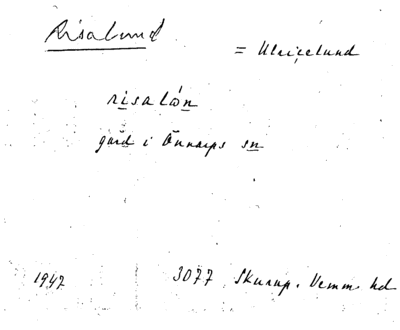 Risalund = Ulricelund
risalón
gård i Önnarps sn
1947 3077 Skurup. Vemm. hd